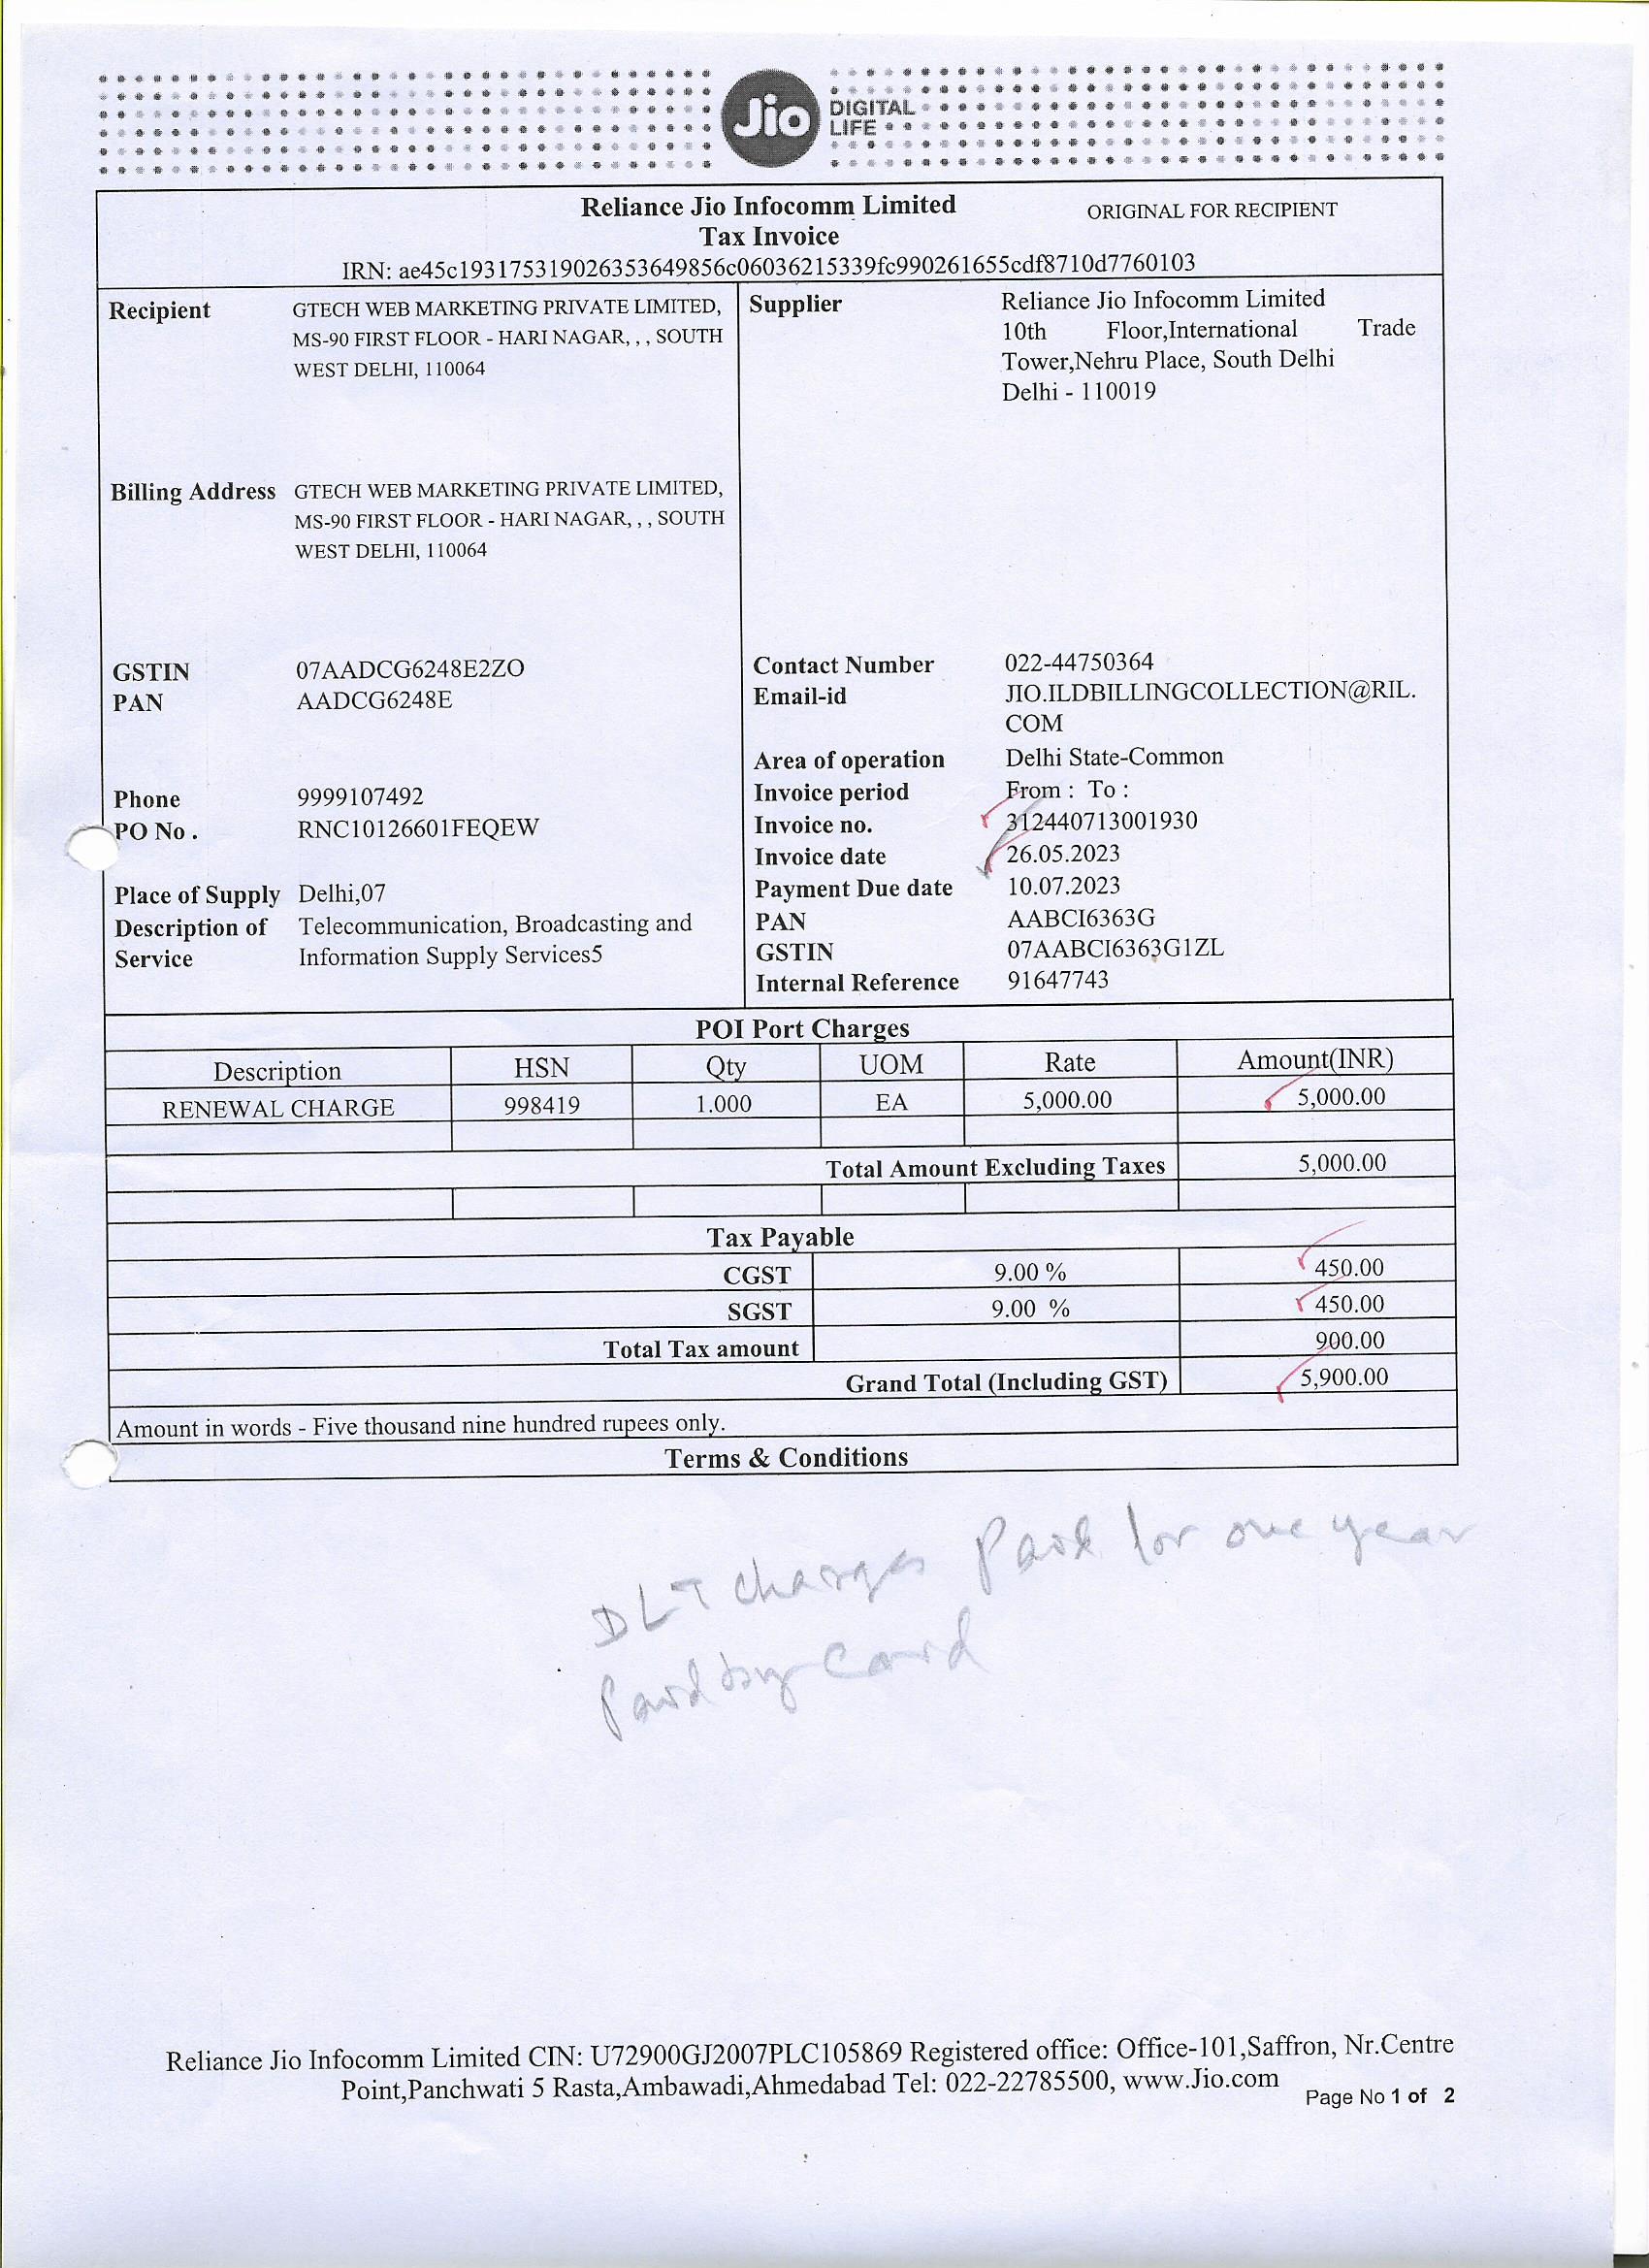 Jio
DIGITAL
LIFE
Reliance Jio Infocomm Limited
ORIGINAL FOR RECIPIENT
Tax Invoice
IRN: ae45c193175319026353649856c06036215339fc990261655cdf8710d7760103
Recipient GTECH WEB MARKETING PRIVATE LIMITED,
MS-90 FIRST FLOOR - HARI NAGAR, , , SOUTH
WEST DELHI, 110064
Billing Address GTECH WEB MARKETING PRIVATE LIMITED,
MS-90 FIRST FLOOR - HARI NAGAR, , , SOUTH
WEST DELHI, 110064
GSTIN 07AADCG6248E2ZO
PAN AADCG6248E
Phone 9999107492
PO No . RNC10126601FEQEW
Place of Supply Delhi,07
Description of Telecommunication, Broadcasting and
Service Information Supply Services5
Supplier Reliance Jio Infocomm Limited
10th Floor,International Trade
Tower,Nehru Place, South Delhi
Delhi - 110019
Contact Number 022-44750364
Email-id JIO.ILDBILLINGCOLLECTION@RIL.
COM
Area of operation Delhi State-Common
Invoice period From : To :
Invoice no. 312440713001930
Invoice date 26.05.2023
Payment Due date 10.07.2023
PAN AABCI6363G
GSTIN 07AABCI6363G1ZL
Internal Reference 91647743
POI Port Charges
Description HSN Qty UOM Rate Amount(INR)
RENEWAL CHARGE 998419 1.000 EA 5,000.00 5,000.00
Total Amount Excluding Taxes 5,000.00
Tax Payable
CGST 9.00 % 450.00
SGST 9.00 % 450.00
Total Tax amount 900.00
Grand Total (Including GST) 5,900.00
Amount in words - Five thousand nine hundred rupees only.
Terms & Conditions
DLT charges Paid for one year
Paid by Card
Reliance Jio Infocomm Limited CIN: U72900GJ2007PLC105869 Registered office: Office-101,Saffron, Nr.Centre
Point,Panchwati 5 Rasta,Ambawadi,Ahmedabad Tel: 022-22785500, www.Jio.com
Page No 1 of 2